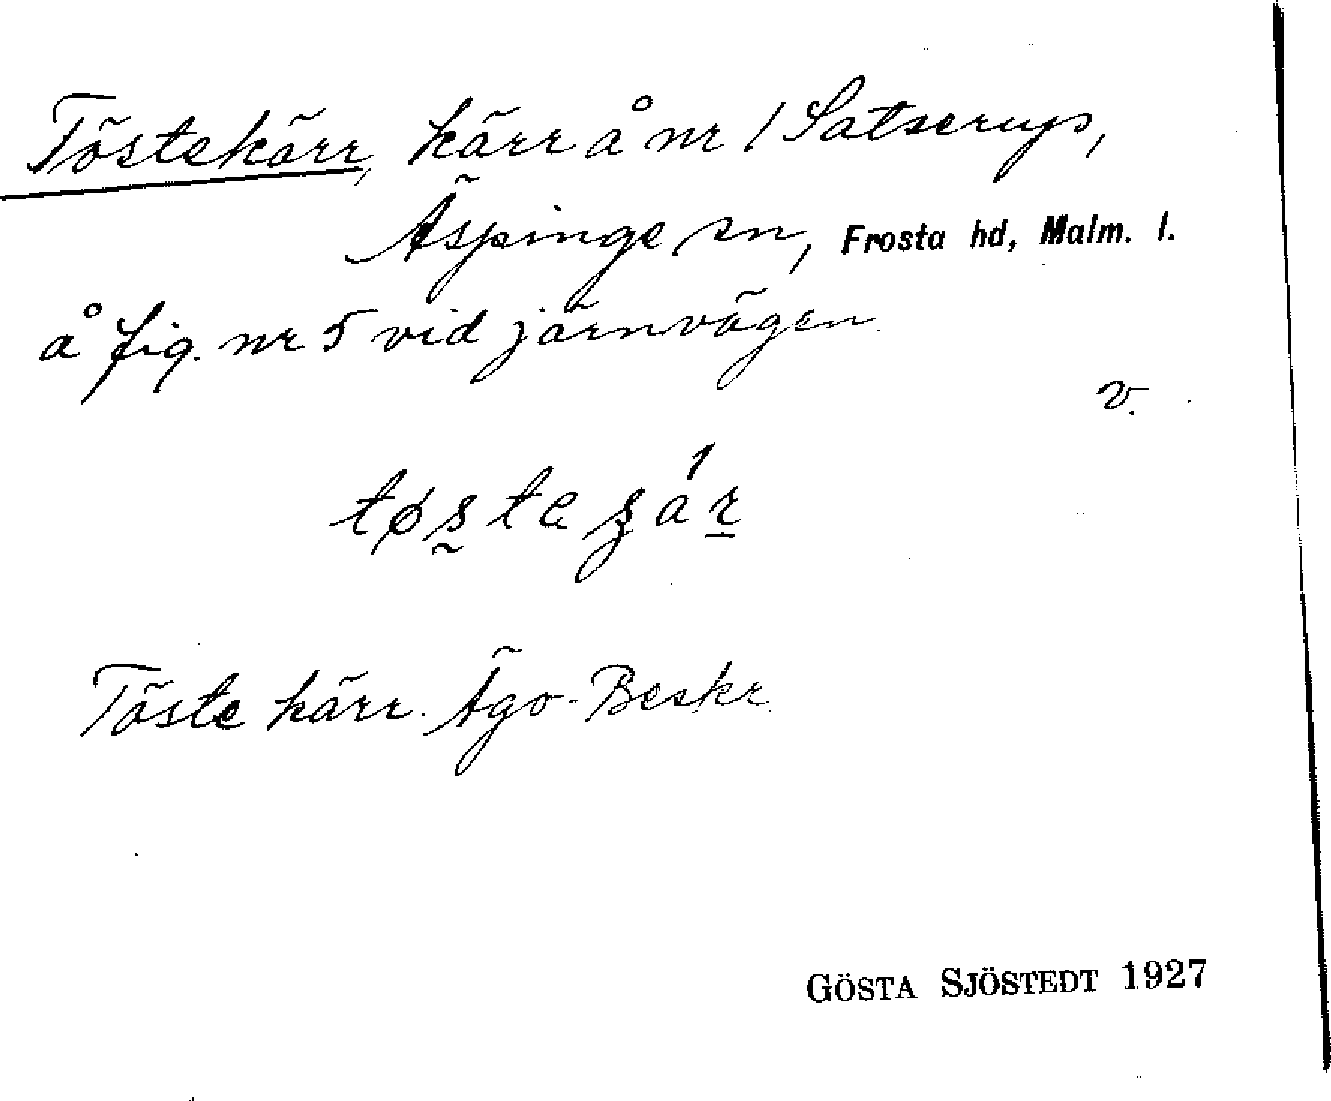 Töstekärr, kärr å nr 1 Satserup,
Äspinge sn, Frosta hd, Malm. l.
å fig. nr 5 vid järnvägen.
v.
Töste kärr. Ägo-Beskr.
GÖSTA SJÖSTEDT 1927